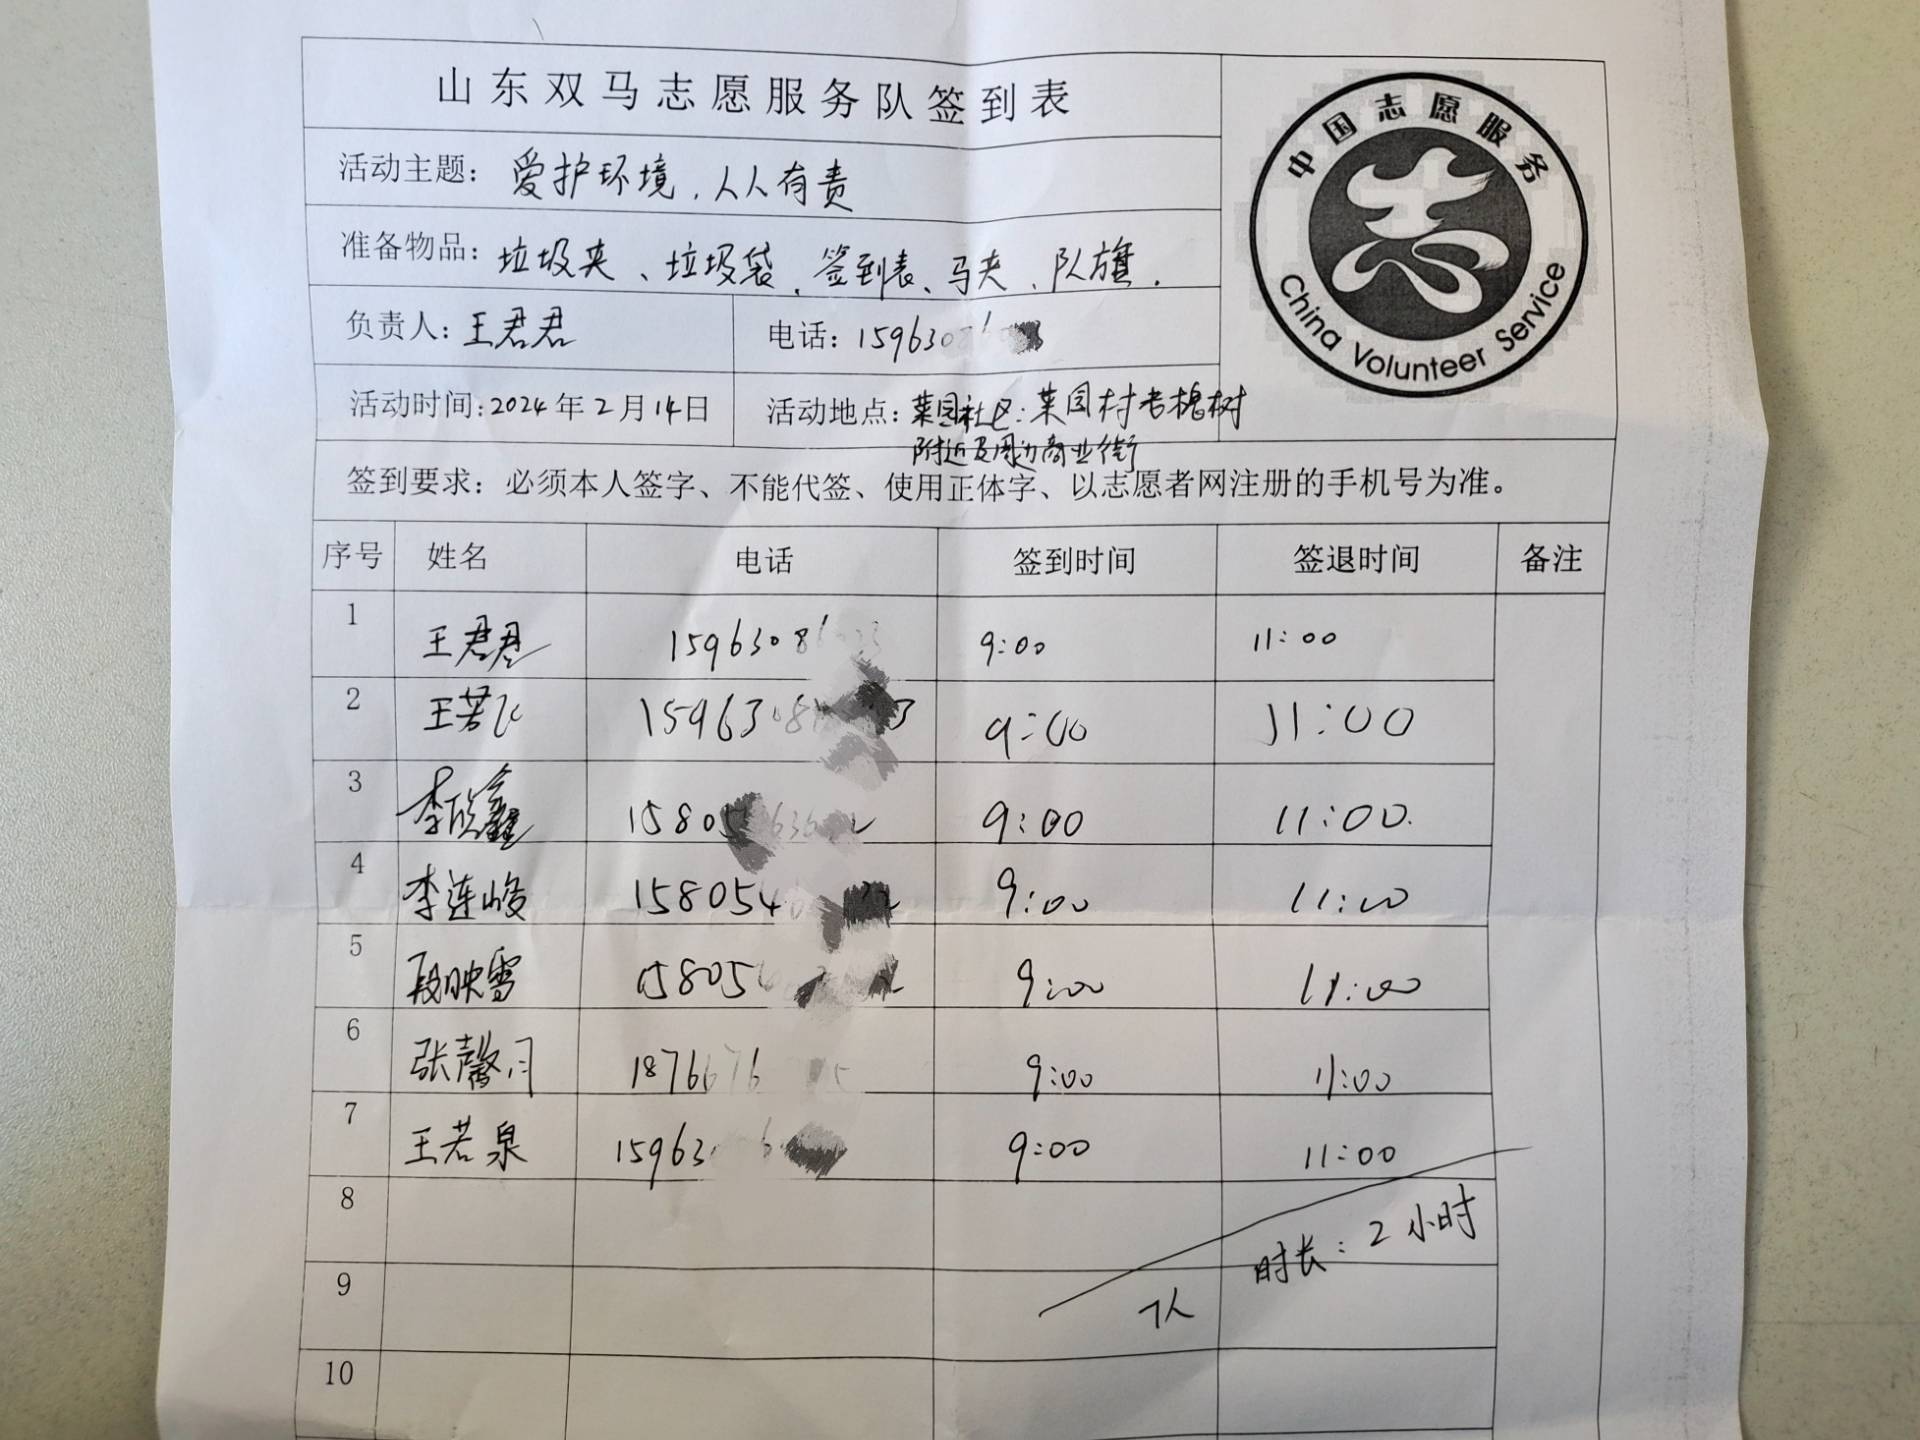 山东双马志愿服务队签到表
中国志愿服务
China Volunteer Service
活动主题：爱护环境，人人有责
准备物品：垃圾夹、垃圾袋、签到表、马夹、队旗.
负责人：王君君 电话：159630
活动时间：2024年2月14日 活动地点：菜园社区：菜园村老槐树
附近及周边商业街
签到要求：必须本人签字、不能代签、使用正体字、以志愿者网注册的手机号为准。
序号 姓名 电话 签到时间 签退时间 备注
1 王君君 15963086 9:00 11:00
2 王若飞 15963 9:00 11:00
3 李欣鑫 15805 9:00 11:00.
4 李连峻 158054 9:00 11:00
5 段映雪 15805 9:00 11:00
6 张馨月 1876676 9:00 11:00
7 王若泉 15963 9:00 11:00
8 时长：2小时
9 7人
10